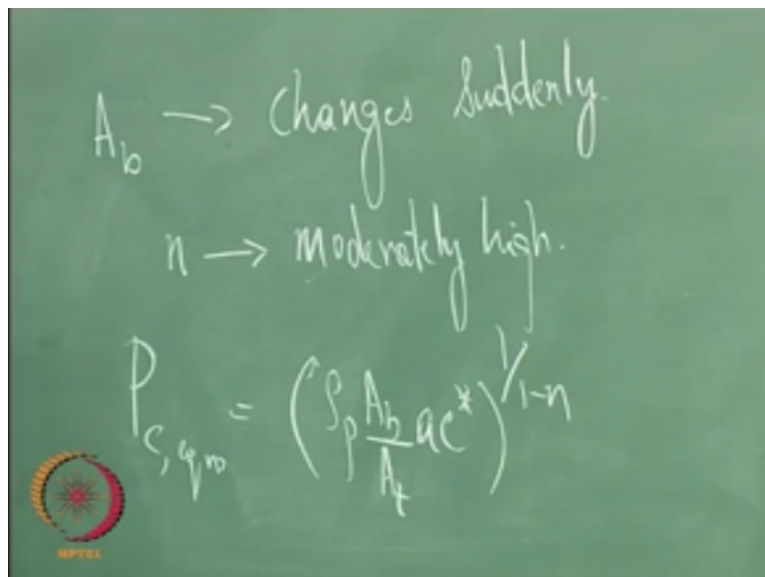 A_b → Changes Suddenly.
n → Moderately high.
P_c,eqm = (ρ_p A_b/A_t ac*)^1/1-n
NPTEL